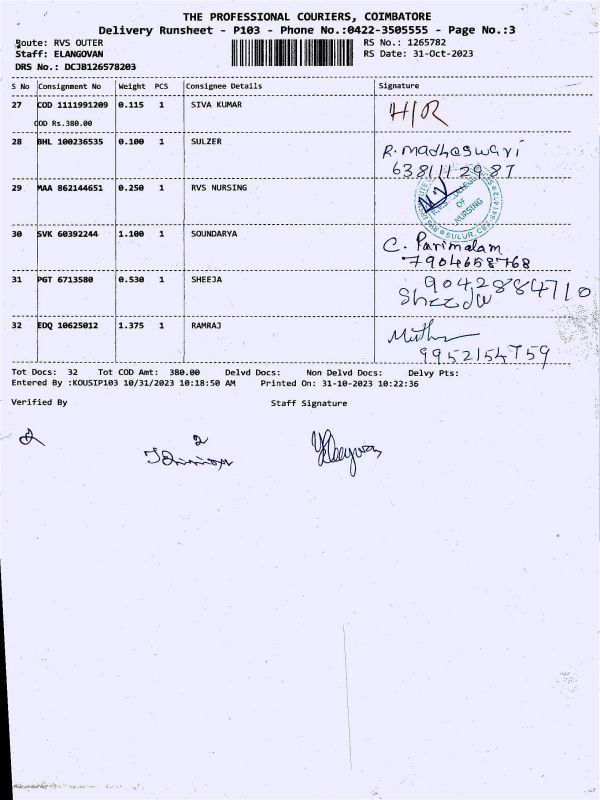 THE PROFESSIONAL COURIERS, COIMBATORE
Delivery Runsheet - P103 - Phone No.:0422-3505555 - Page No.:3
Route: RVS OUTER RS No.: 1265782
Staff: ELANGOVAN RS Date: 31-Oct-2023
DRS No.: DCJB126578203
S No Consignment No Weight PCS Consignee Details Signature
27 COD 1111991209 0.115 1 SIVA KUMAR H/R
COD Rs.380.00
28 BHL 100236535 0.100 1 SULZER R. Madheswari
6381112987
29 MAA 862144651 0.250 1 RVS NURSING
OF
NURSING
SULUR
30 SVK 60392244 1.100 1 SOUNDARYA C. Parimalam
7904658768
31 PGT 6713580 0.530 1 SHEEJA 9042884710
32 EDQ 10625012 1.375 1 RAMRAJ
9952154759
Tot Docs: 32 Tot COD Amt: 380.00 Delvd Docs: Non Delvd Docs: Delvy Pts:
Entered By :KOUSIP103 10/31/2023 10:18:50 AM Printed On: 31-10-2023 10:22:36
Verified By Staff Signature